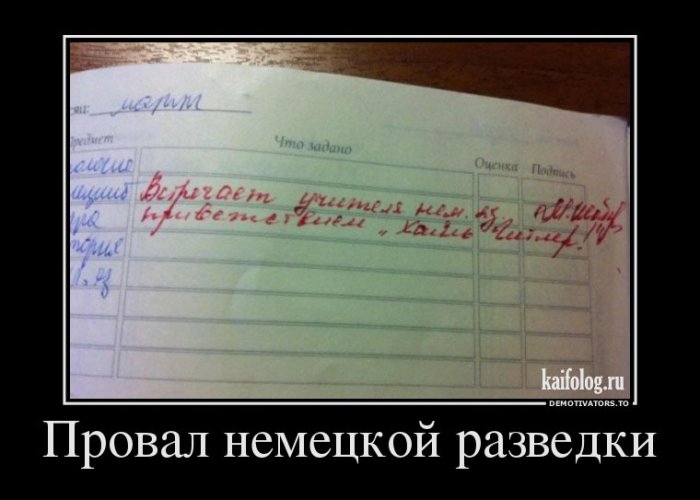 март
Предмет Что задано Оценка Подпись
Встречает учителя нем. яз
приветствием „Хайль Гитлер!"
kaifolog.ru
DEMOTIVATORS.TO
Провал немецкой разведки